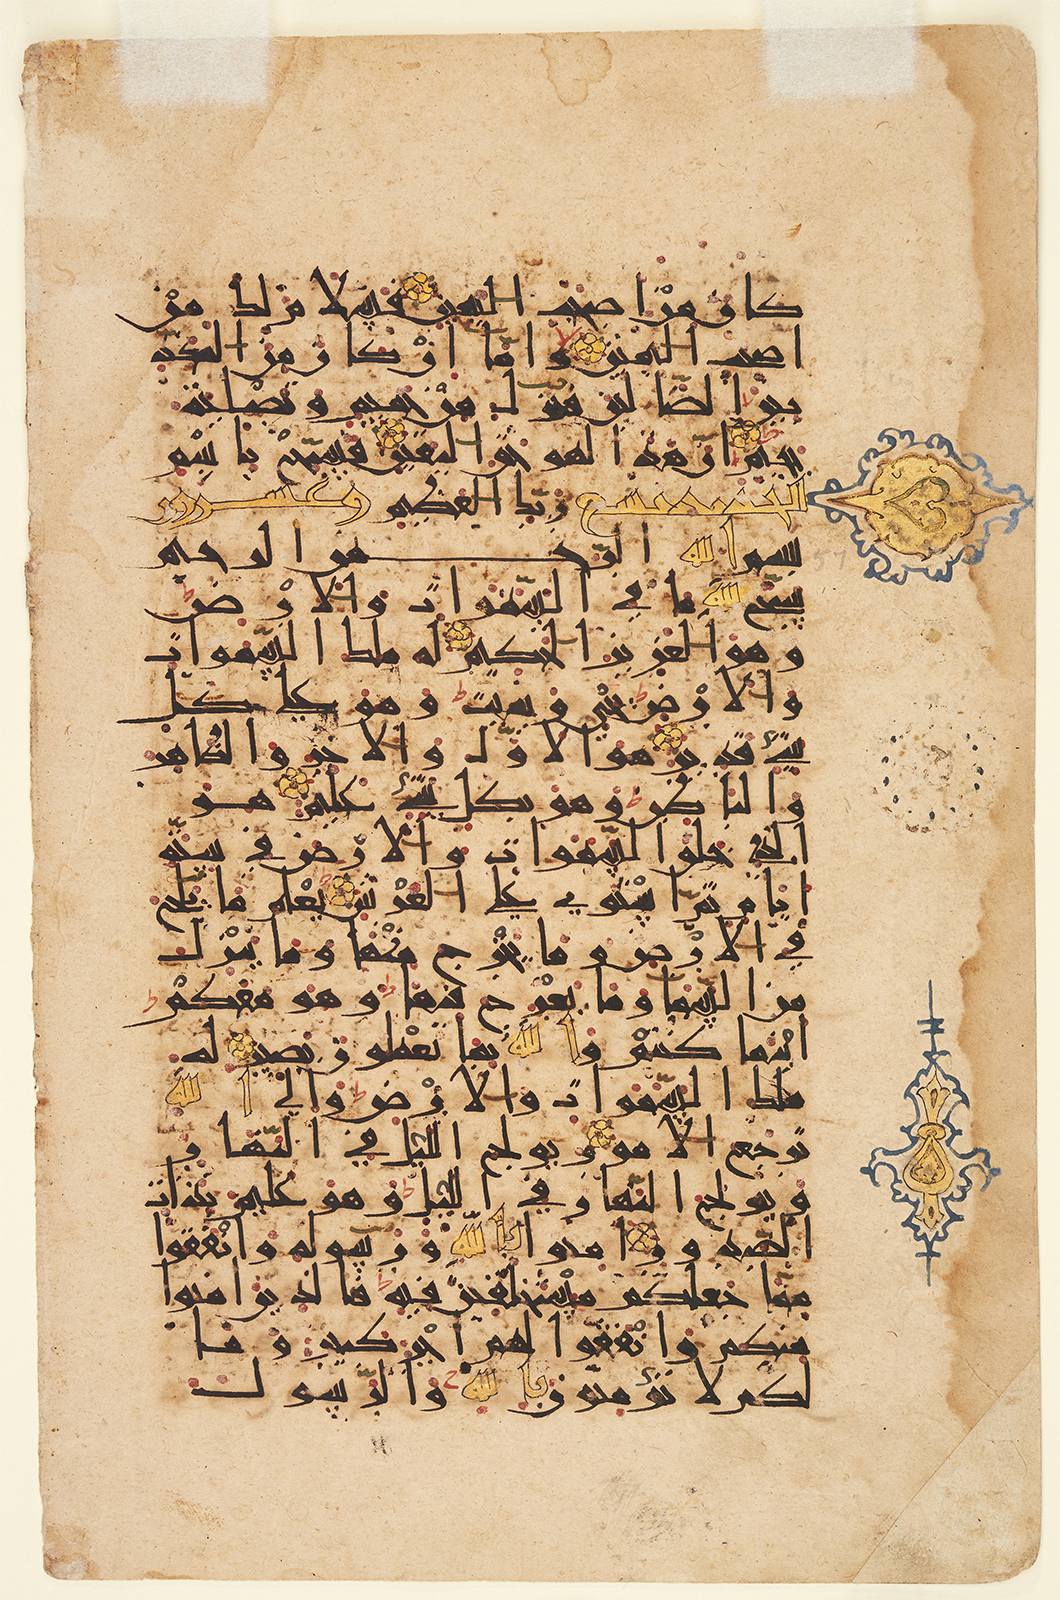 كان من اصحب اليمين فسلم لك من
اصحب اليمين واما ان كان من المكذ
بين الضالين فنزل من حميم وتصلية
جحيم ان هذا لهو حق اليقين فسبح باسم
الحديد تسع ربك العظيم وعشرون
بسم الله الرحمن الرحيم
سبح لله ما في السموات والارض
وهو العزيز الحكيم له ملك السموات
والارض يحي ويميت وهو على كل
شيء قدير هو الاول والاخر والظاهر
والباطن وهو بكل شيء عليم هو
الذي خلق السموات والارض في ستة
ايام ثم استوى على العرش يعلم ما يلج
في الارض وما يخرج منها وما ينزل
من السما وما يعرج فيها وهو معكم
اين ما كنتم والله بما تعملون بصير له
ملك السموات والارض والى الله
ترجع الامور يولج اليل في النهار
ويولج النهار في اليل وهو عليم بذات
الصدور امنوا بالله ورسوله وانفقوا
مما جعلكم مستخلفين فيه فالذين امنوا
منكم وانفقوا لهم اجر كبير وما
لكم لا تؤمنون بالله والرسول
57